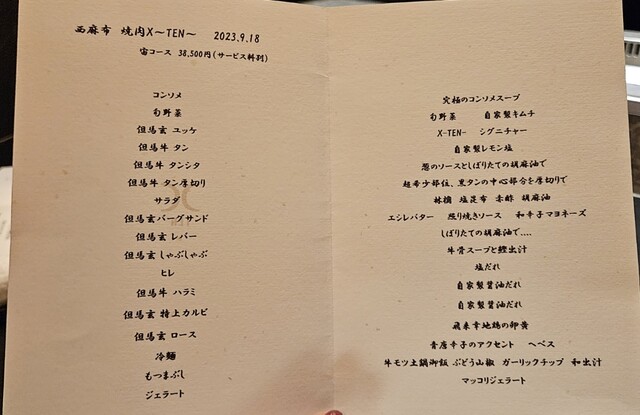 西麻布 焼肉X～TEN～ 2023.9.18
宙コース 38,500円(サービス料別)
コンソメ
旬野菜
但馬玄 ユッケ
但馬牛 タン
但馬牛 タンシタ
但馬牛 タン厚切り
サラダ
但馬玄バーグサンド
但馬玄 レバー
但馬玄 しゃぶしゃぶ
ヒレ
但馬牛 ハラミ
但馬玄 特上カルビ
但馬玄 ロース
冷麺
もつまぶし
ジェラート
究極のコンソメスープ
旬野菜 自家製キムチ
X-TEN- シグニチャー
自家製レモン塩
葱のソースとしぼりたての胡麻油で
超希少部位、黒タンの中心部分を厚切りで
林檎 塩昆布 赤酢 胡麻油
エシレバター 照り焼きソース 和辛子マヨネーズ
しぼりたての胡麻油で....
牛骨スープと鰹出汁
塩だれ
自家製醤油だれ
自家製醤油だれ
飛来幸地鶏の卵黄
青唐辛子のアクセント ヘベス
牛モツ土鍋御飯 ぶどう山椒 ガーリックチップ 和出汁
マッコリジェラート